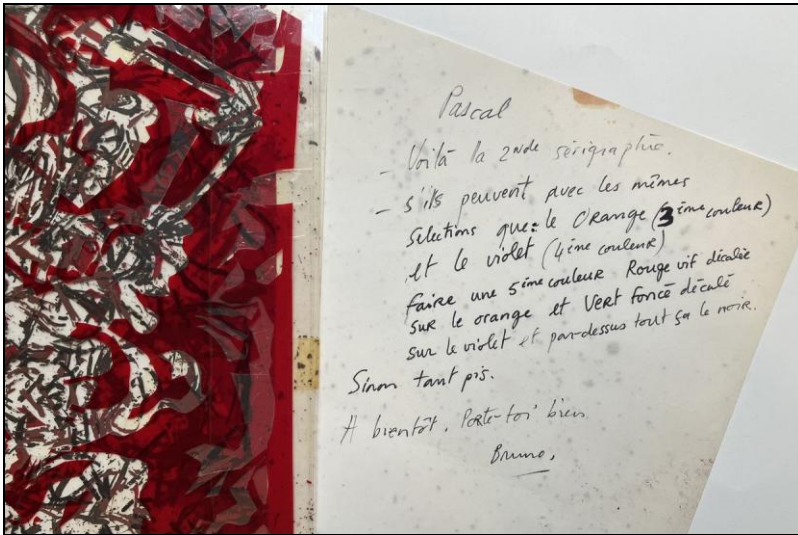 Pascal
- Voilà la 2nde sérigraphie.
- s'ils peuvent avec les mêmes
selections que: le Orange (3ième couleur)
et le violet (4ième couleur)
faire une 5ième couleur Rouge vif décalée
sur le orange et Vert foncé décalé
sur le violet et par-dessus tout ça le noir.
Sinon tant pis.
A bientôt. Porte-toi bien
Bruno,